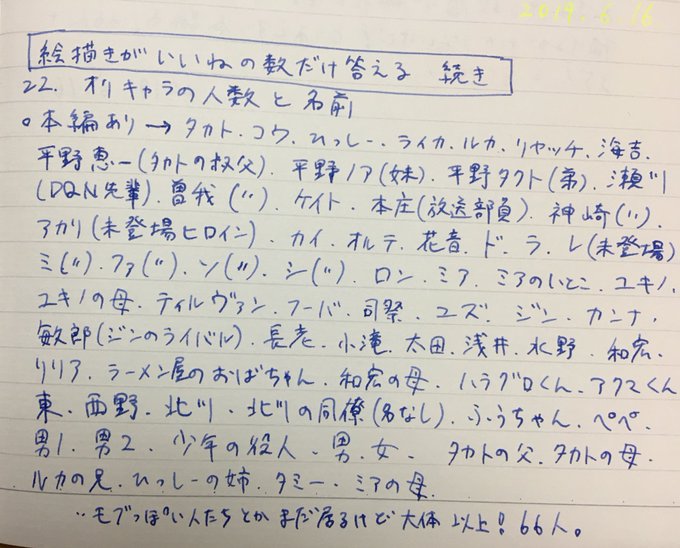 2019.6.16
絵描きがいいねの数だけ答える 続き
22. オリキャラの人数と名前
○本編あり→タカト・コウ・ひっしー・ライカ・ルカ・リヤッチ・海吉・
平野恵一(タカトの叔父)・平野ノア(妹)・平野タクト(弟)・瀬川
(DQN先輩)・曽我(〃)・ケイト・本庄(放送部員)・神崎(〃)・
アカリ(未登場ヒロイン)・カイ・オルテ・花音・ド・ラ・レ(未登場)
ミ(〃)・ファ(〃)・ソ(〃)・シ(〃)・ロン・ミア・ミアのいとこ・ユキノ・
ユキノの母・ティルヴァン・フーバ・司祭・ユズ・ジン・カンナ・
敏郎(ジンのライバル)・長老・小滝・太田・浅井・水野・和宏・
リリア・ラーメン屋のおばちゃん・和宏の母・ハラグロくん・アクマくん
東・西野・北川・北川の同僚(名なし)・ふうちゃん・ペペ・
男1・男2・少年の役人・男・女・タカトの父・タカトの母・
ルカの兄・ひっしーの姉・タミー・ミアの母・
∴モブっぽい人たちとかまだ居るけど大体以上!66人。